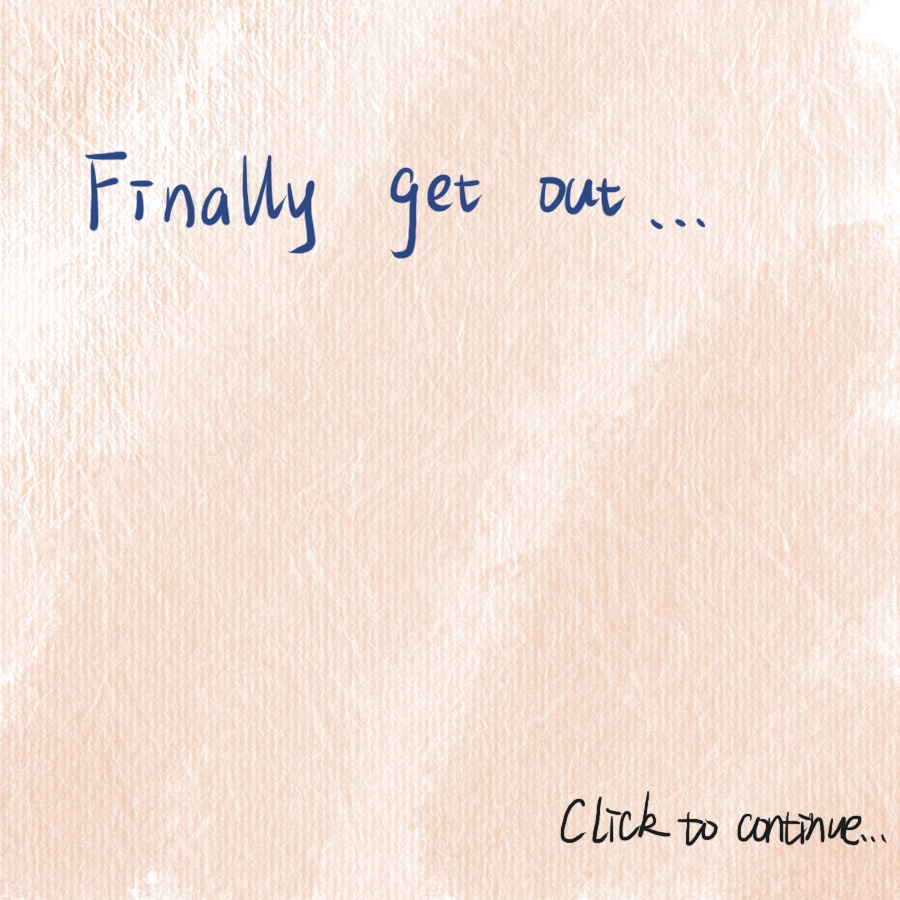 Finally get out...
Click to continue...